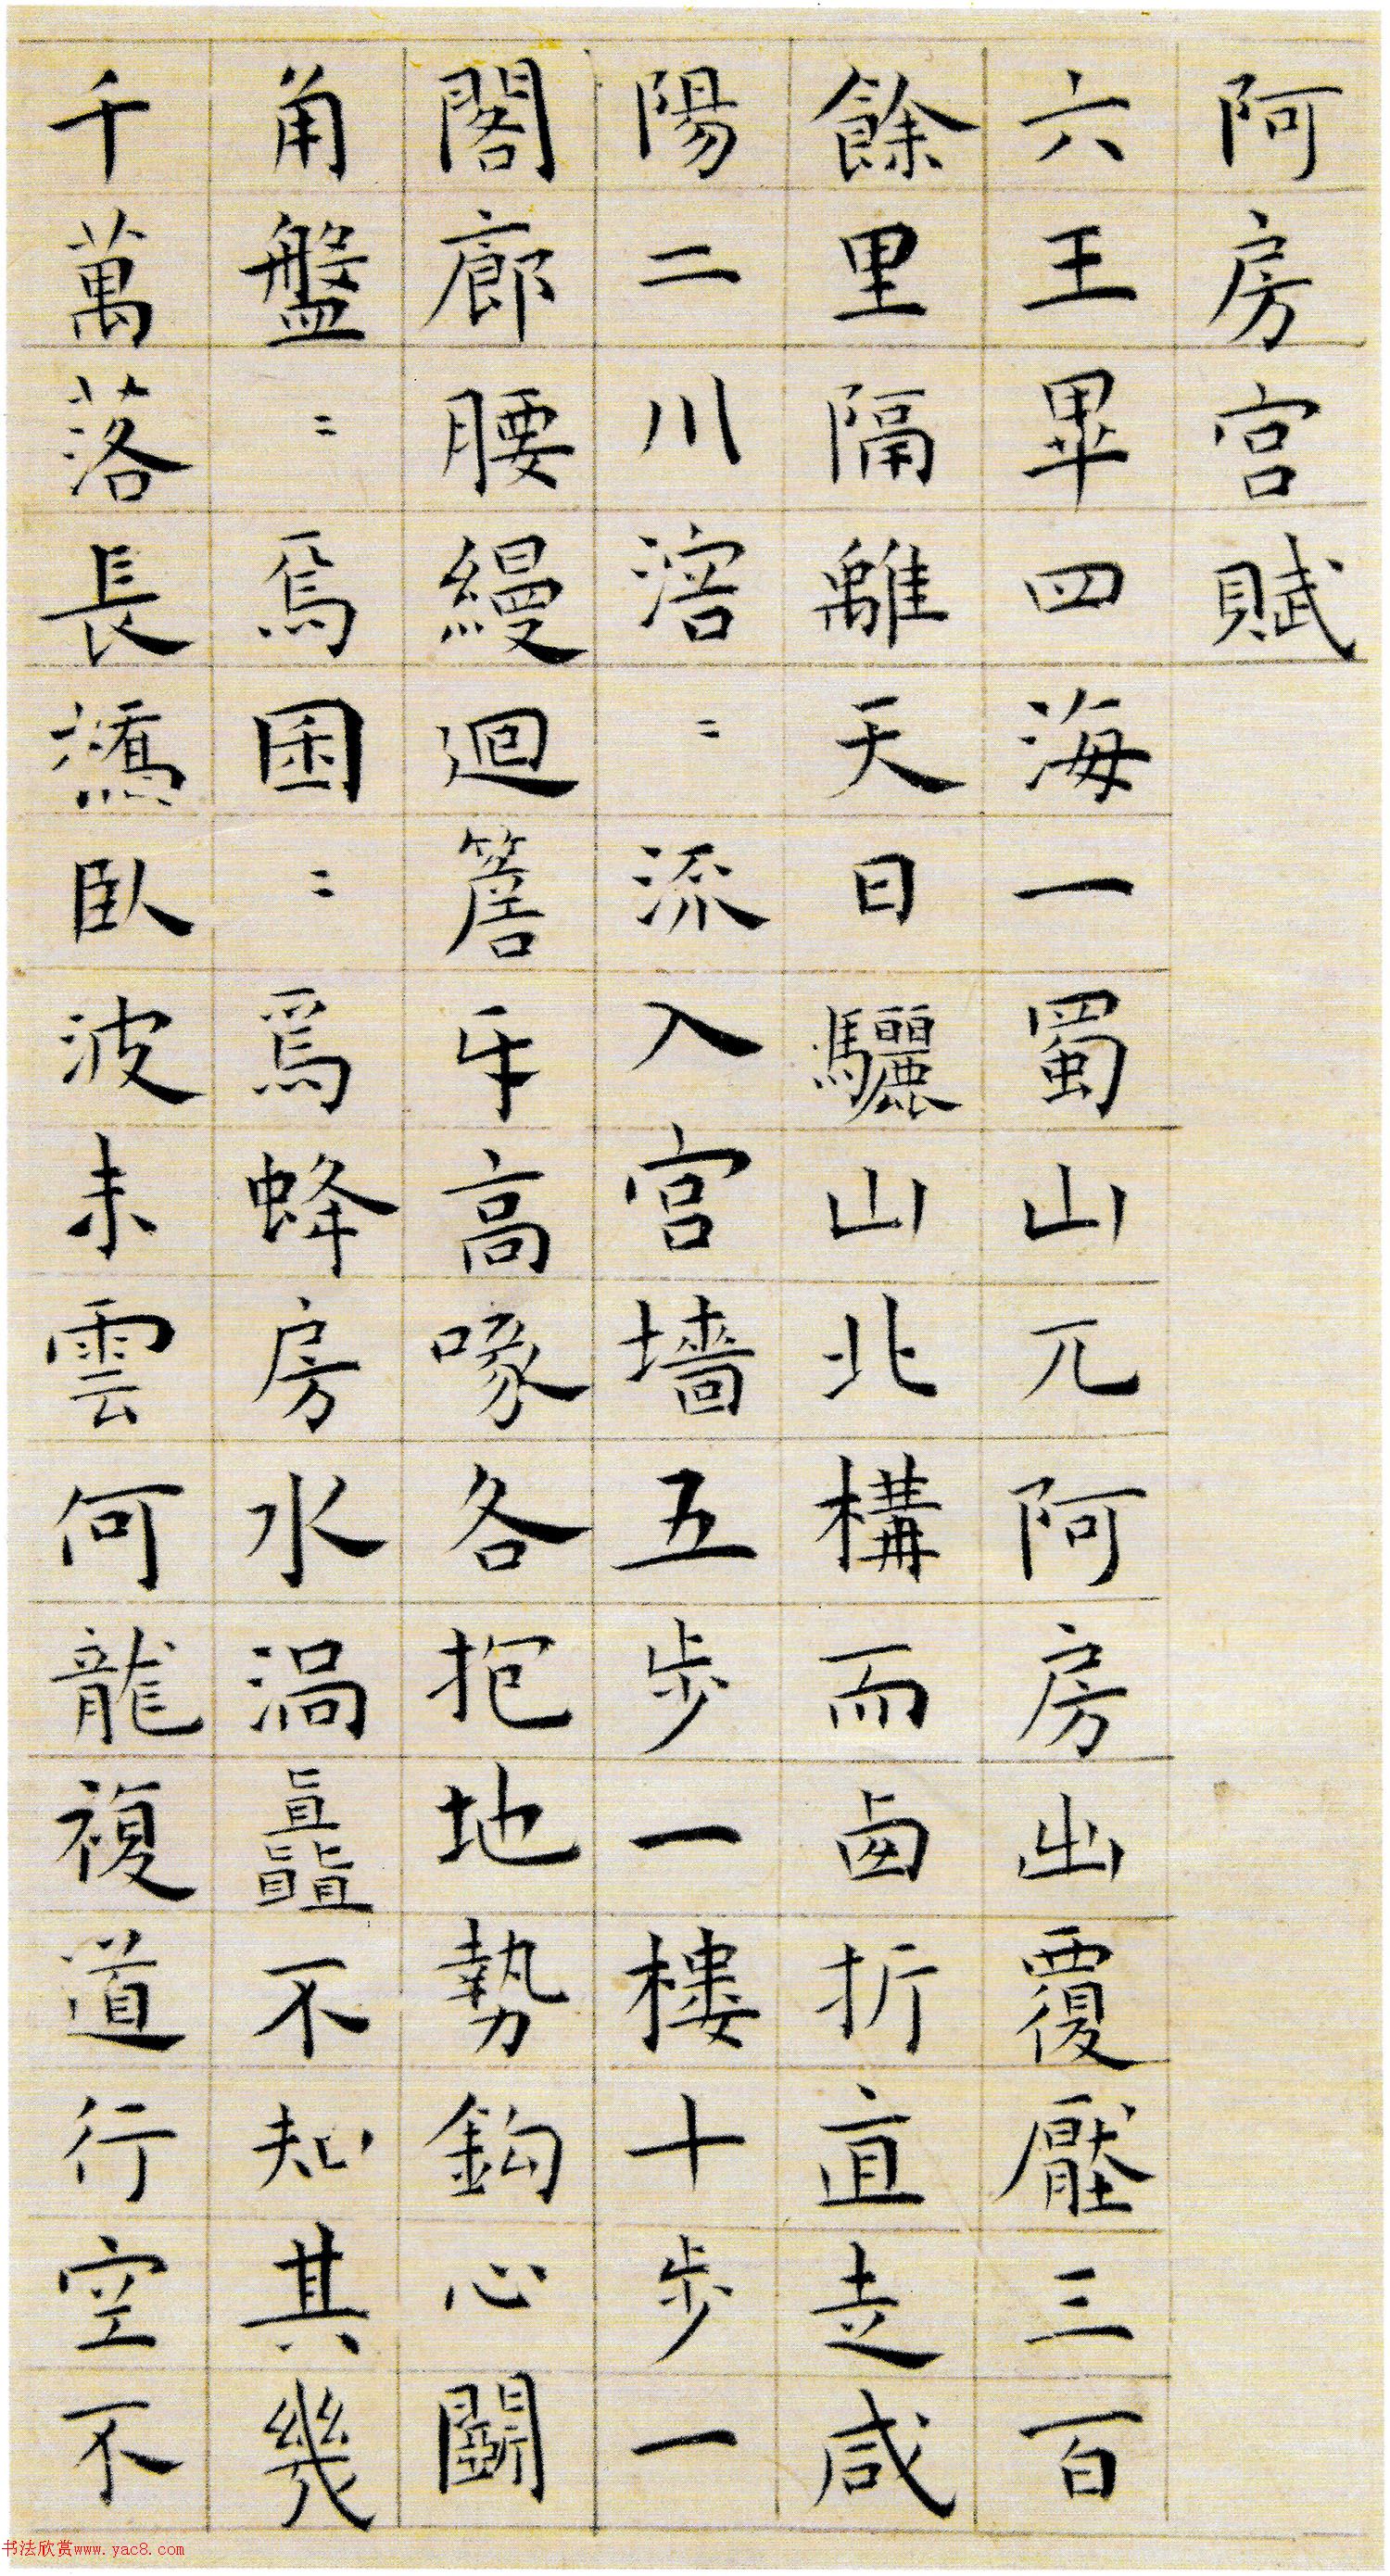 阿房宫賦
六王畢四海一蜀山兀阿房出覆壓三百
餘里隔離天日驪山北構而西折直走咸
陽二川溶〻流入宫墻五步一樓十步一
閣廊腰縵迴簷牙高啄各抱地勢鈎心鬬
角盤〻焉囷〻焉蜂房水渦矗不知其幾
千萬落長橋臥波未雲何龍複道行空不
书法欣赏www.yac8.com